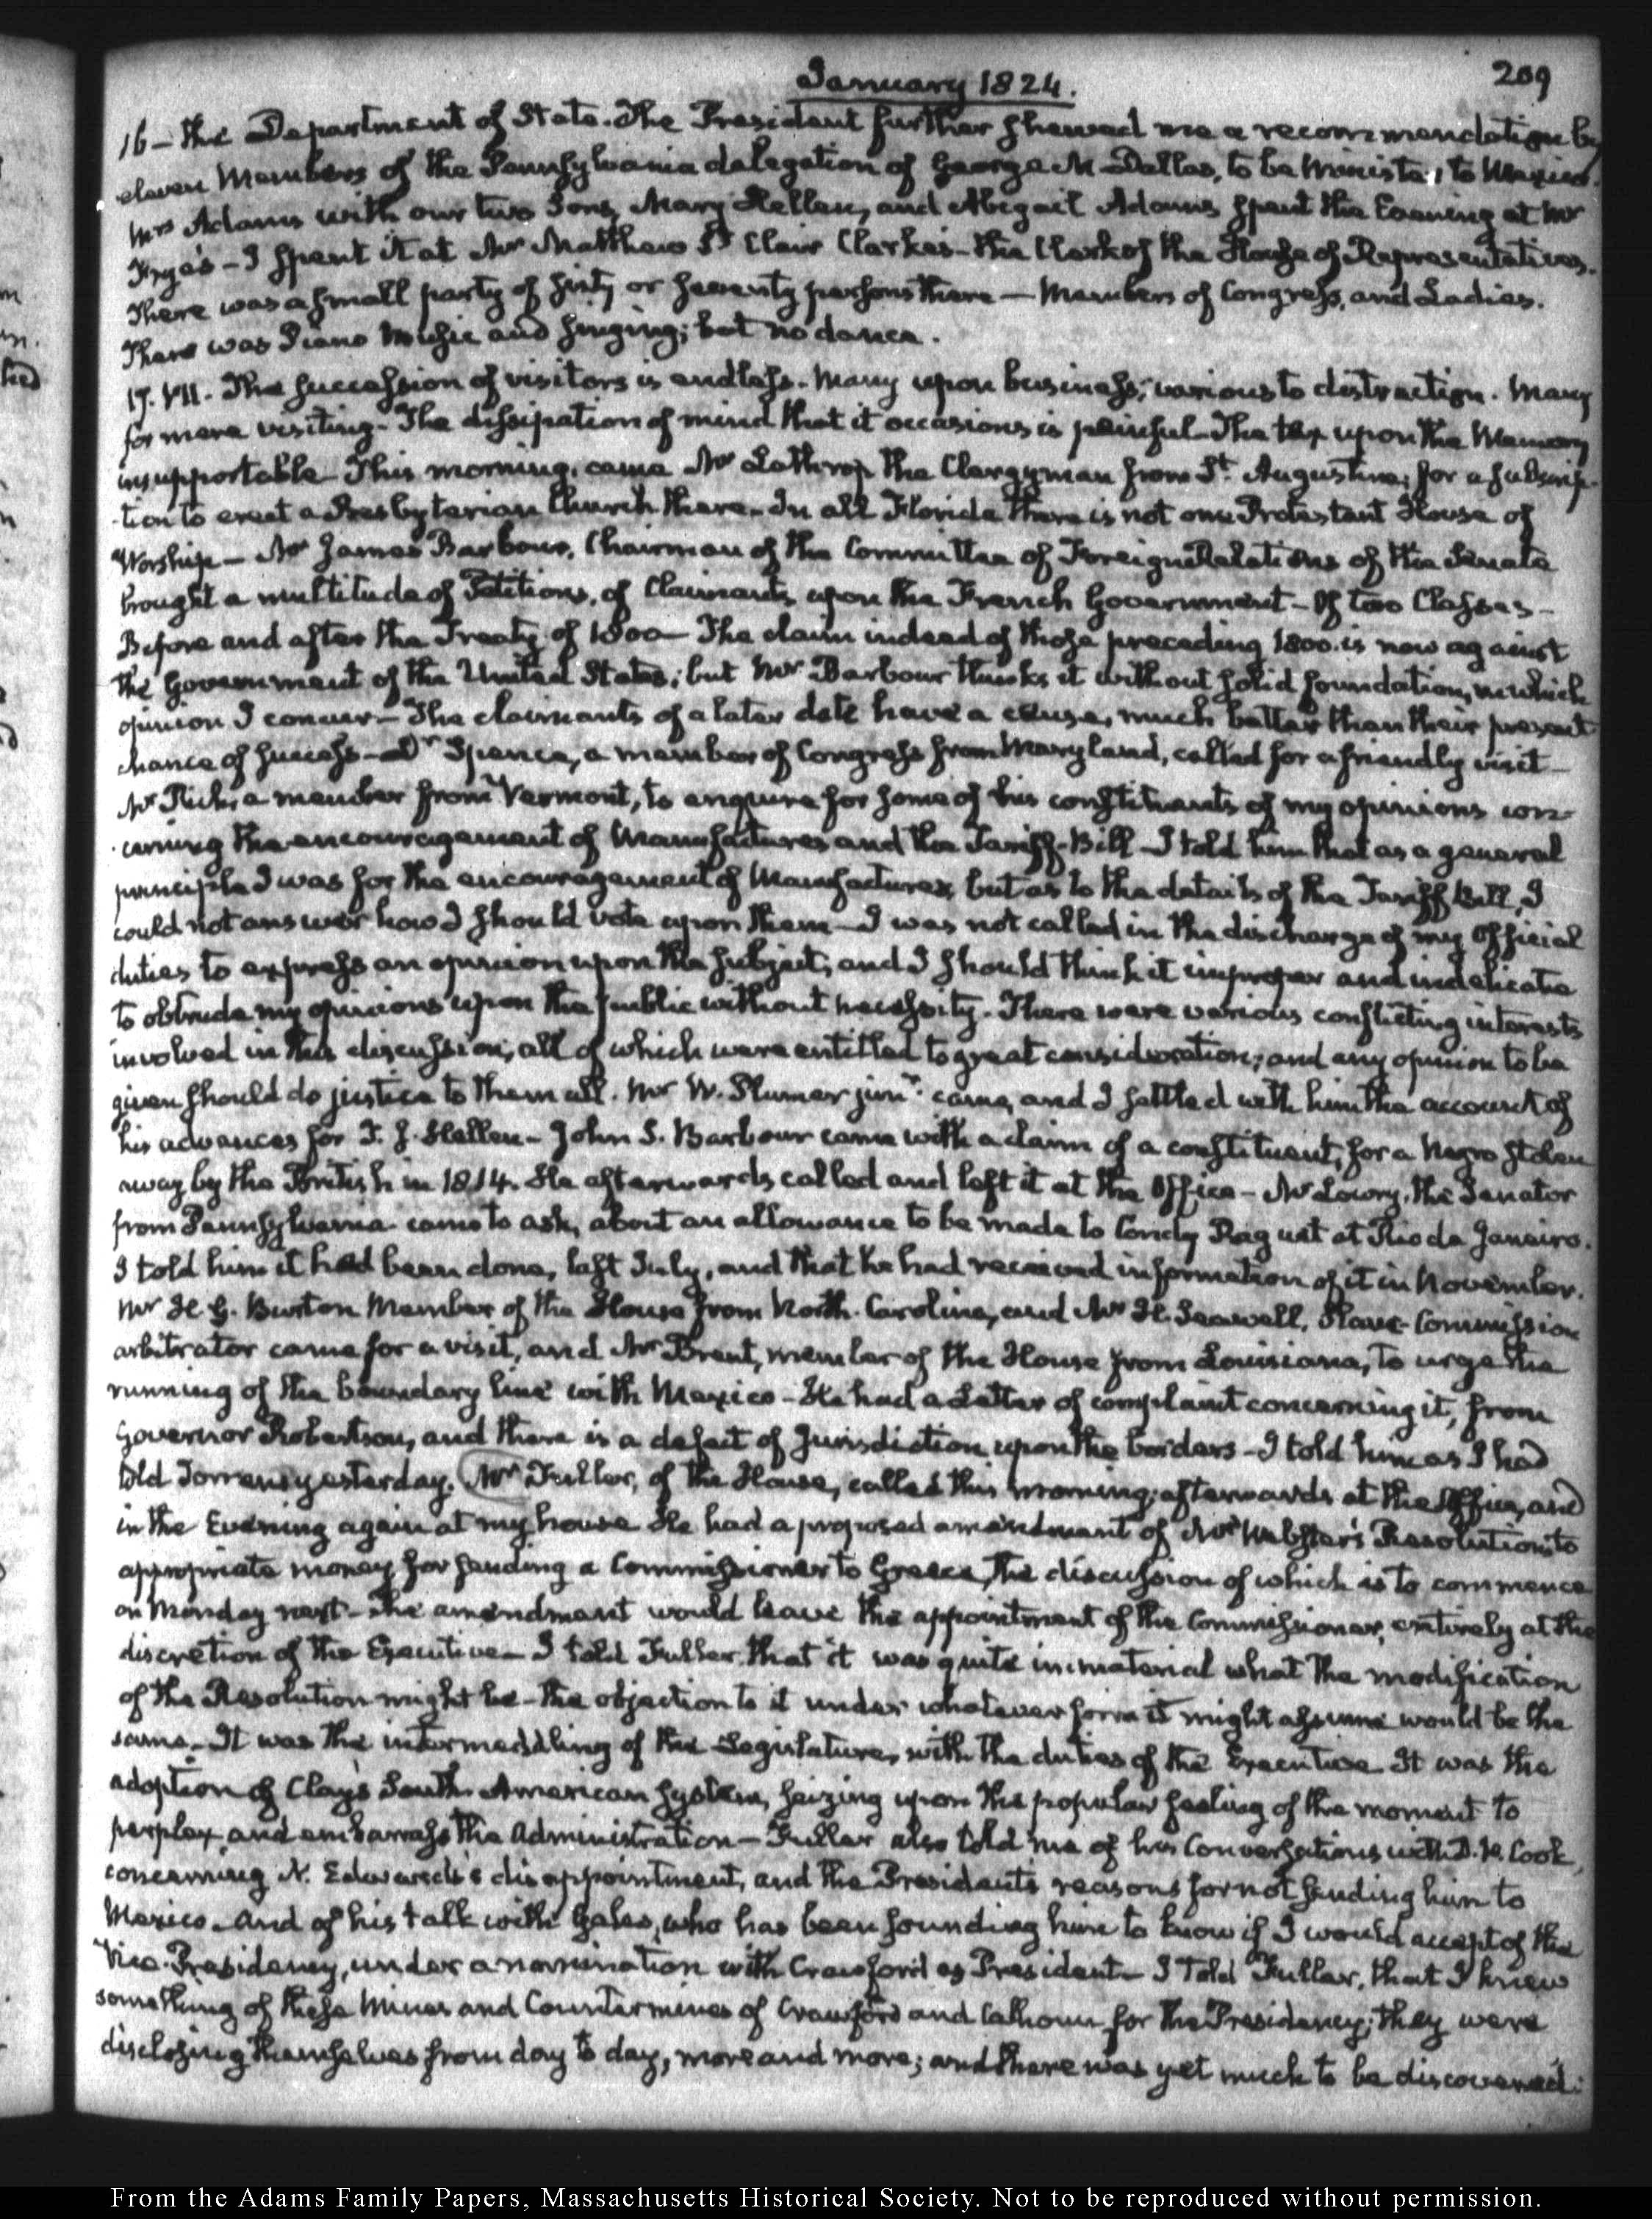 January 1824.
209
16 - the Department of State. The President further shewed me a recommendation by
eleven Members of the Pennsylvania delegation of George M Dallas, to be Minister to Mexico.
Mrs Adams with our two Sons, Mary Hellen, and Abigail Adams spent the Evening at Mr
Frye's - I spent it at Mr Matthew St Clair Clarke's - the Clerk of the House of Representatives.
There was a small party of sixty or seventy persons there — Members of Congress, and Ladies.
There was Piano Music and singing; but no dance.
17. VII. The succession of visitors is endless. Many upon business; various to distraction. Many
for mere visiting - The dissipation of mind that it occasions is painful - The tax upon the Memory
insupportable - This morning, came Mr Lathrop the Clergyman from St. Augustine, for a subscrip-
-tion to erect a Presbyterian Church there. In all Florida there is not one Protestant House of
Worship — Mr James Barbour, Chairman of the Committee of Foreign Relations of the Senate
brought a multitude of Petitions, of Claimants upon the French Government - Of two Classes -
Before and after the Treaty of 1800 — The claim indeed of those preceding 1800. is now against
the Government of the United States; but Mr Barbour thinks it without solid foundation, in which
opinion I concur — The claimants of a later date have a cause, much better than their present
chance of success — Dr Spence, a member of Congress from Maryland, called for a friendly visit —
Mr Rich, a member from Vermont, to enquire for some of his constituents of my opinions con-
-cerning the encouragement of Manufactures and the Tariff-Bill — I told him that as a general
principle I was for the encouragement of Manufactures, but as to the details of the Tariff Bill, I
could not answer how I should vote upon them — I was not called in the discharge of my Official
duties to express an opinion upon the subject, and I should think it improper and indelicate
to obtrude my opinions upon the public without necessity. There were various conflicting interests
involved in this discussion, all of which were entitled to great consideration; and any opinion to be
given should do justice to them all. Mr W. Plumer junr. came, and I settled with him the account of
his advances for T. J. Hellen - John S. Barbour came with a claim of a constituent, for a Negro stolen
away by the British in 1814. He afterwards called and left it at the Office - Mr Lowry, the Senator
from Pennsylvania came to ask, about an allowance to be made to Condy Raguet at Rio de Janeiro.
I told him it had been done, last July, and that he had received information of it in November.
Mr H. G. Burton Member of the House from North-Carolina, and Mr H. Seawell, Slave-Commission
arbitrator came for a visit, and Mr Brent, member of the House from Louisiana, to urge the
running of the boundary line with Mexico - He had a Letter of complaint concerning it, from
Governor Robertson, and there is a defect of Jurisdiction upon the borders - I told him as I had
told Torrens yesterday. Mr Fuller, of the House, called this morning; afterwards at the Office, and
in the Evening again at my house He had a proposed amendment of Mr Webster's Resolution to
appropriate money for sending a Commissioner to Greece, the discussion of which is to commence
on Monday next - The amendment would leave the appointment of the Commissioner, entirely at the
discretion of the Executive — I told Fuller, that it was quite immaterial what the modification
of the Resolution might be - the objection to it under whatever form it might assume would be the
same - It was the intermeddling of the Legislature, with the duties of the Executive It was the
adoption of Clay's South-American system, seizing upon the popular feeling of the moment to
perplex and embarrass the Administration — Fuller also told me of his Conversations with D. P. Cook,
concerning N. Edwards's disappointment, and the President's reasons for not sending him to
Mexico - And of his talk with Gales, who has been sounding him to know if I would accept of the
Vice-Presidency, under a nomination with Crawford as President — I told Fuller, that I knew
something of these Mines and Countermines of Crawford and Calhoun for the Presidency; they were
disclosing themselves from day to day, more and more; and there was yet much to be discovered.
From the Adams Family Papers, Massachusetts Historical Society. Not to be reproduced without permission.